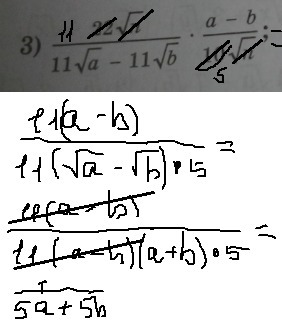 11 22√n a − b
3) ――――――― · ――――― ; =
11√a − 11√b 10√n
5
11(a-b)
――――――― =
11(√a - √b)·5
11(a-b)
――――――― =
11(a-b)(a+b)·5
1
―――――――
5a+5b